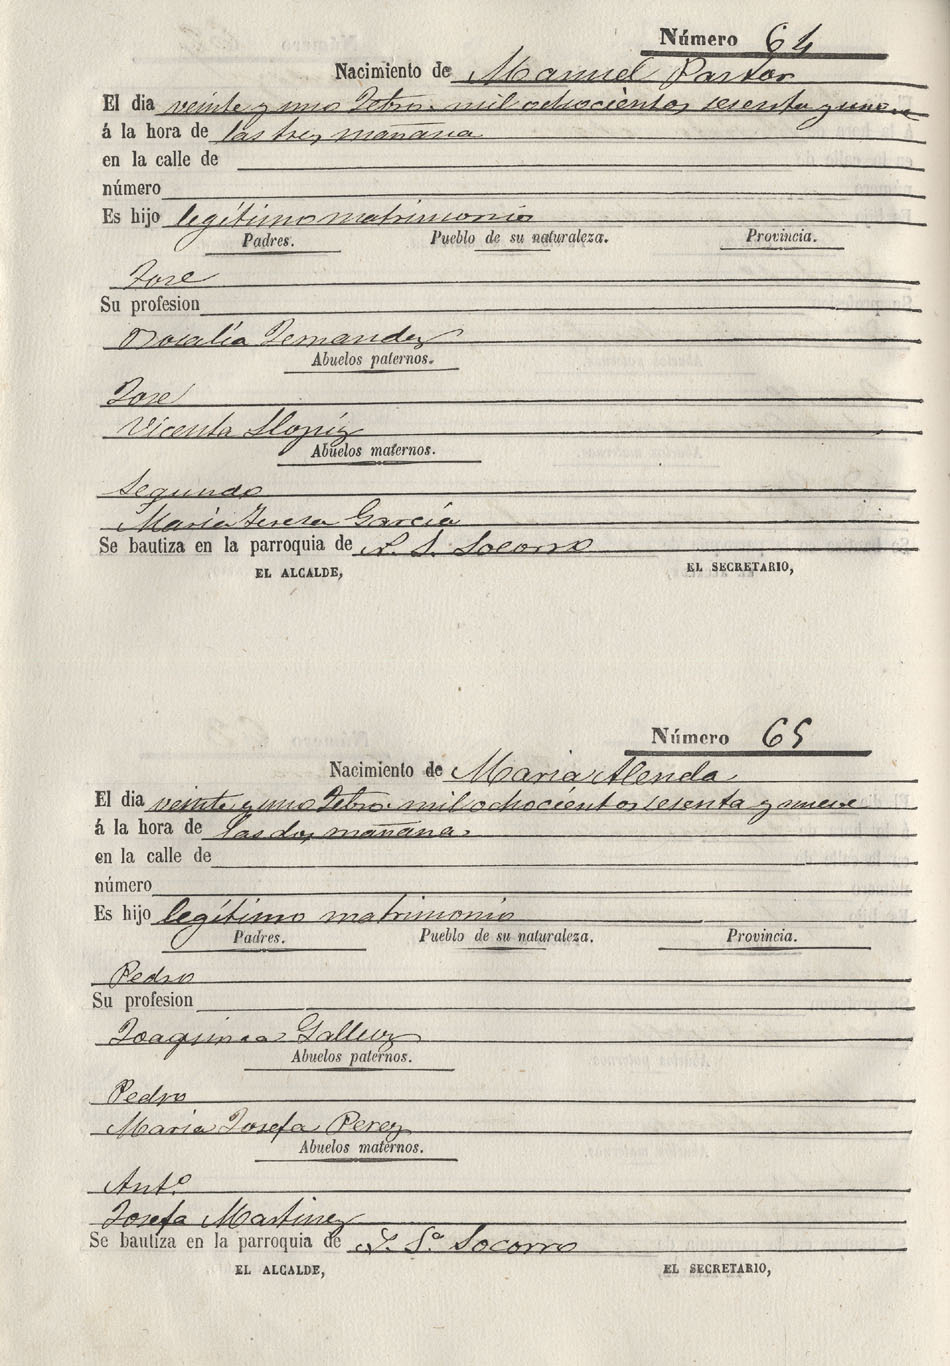 Número 64
Nacimiento de Manuel Pastor
El dia veinte y uno Febro. mil ochocientos sesenta y nueve
á la hora de las tres mañana
en la calle de
número
Es hijo legítimo matrimonio
Padres. Pueblo de su naturaleza. Provincia.
Jose
Su profesion
Rosalía Fernandez
Abuelos paternos.
Jose
Vicenta Llopiz
Abuelos maternos.
Segundo
Maria Teresa García
Se bautiza en la parroquia de N. S. Socorro
EL ALCALDE, EL SECRETARIO,
Número 65
Nacimiento de Maria Alenda
El dia veinte y uno Febro. mil ochocientos sesenta y nueve
á la hora de las dos mañana
en la calle de
número
Es hijo legítimo matrimonio
Padres. Pueblo de su naturaleza. Provincia.
Pedro
Su profesion
Joaquina Galluz
Abuelos paternos.
Pedro
Maria Josefa Perez
Abuelos maternos.
Antº
Josefa Martinez
Se bautiza en la parroquia de Sª Socorro
EL ALCALDE, EL SECRETARIO,